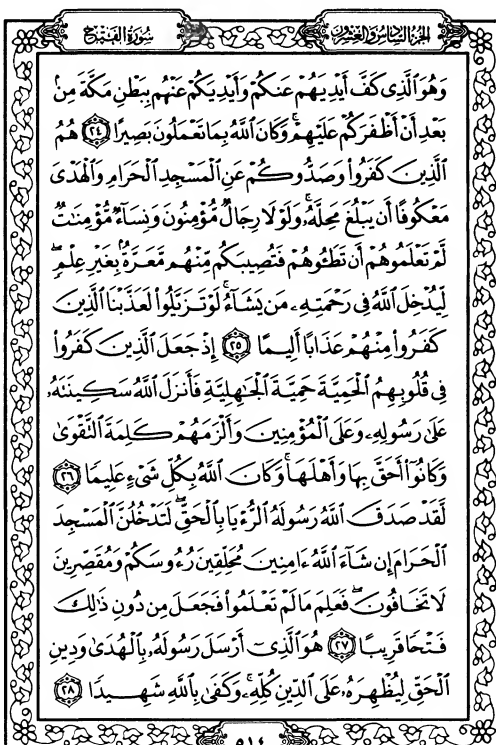 الجزء السادس والعشرون سورة الفتح
وَهُوَ ٱلَّذِى كَفَّ أَيْدِيَهُمْ عَنكُمْ وَأَيْدِيَكُمْ عَنْهُم بِبَطْنِ مَكَّةَ مِنۢ
بَعْدِ أَنْ أَظْفَرَكُمْ عَلَيْهِمْ ۚ وَكَانَ ٱللَّهُ بِمَا تَعْمَلُونَ بَصِيرًا ٢٤ هُمُ
ٱلَّذِينَ كَفَرُوا۟ وَصَدُّوكُمْ عَنِ ٱلْمَسْجِدِ ٱلْحَرَامِ وَٱلْهَدْىَ
مَعْكُوفًا أَن يَبْلُغَ مَحِلَّهُۥ ۚ وَلَوْلَا رِجَالٌ مُّؤْمِنُونَ وَنِسَآءٌ مُّؤْمِنَـٰتٌ
لَّمْ تَعْلَمُوهُمْ أَن تَطَـُٔوهُمْ فَتُصِيبَكُم مِّنْهُم مَّعَرَّةٌۢ بِغَيْرِ عِلْمٍ ۖ
لِّيُدْخِلَ ٱللَّهُ فِى رَحْمَتِهِۦ مَن يَشَآءُ ۚ لَوْ تَزَيَّلُوا۟ لَعَذَّبْنَا ٱلَّذِينَ
كَفَرُوا۟ مِنْهُمْ عَذَابًا أَلِيمًا ٢٥ إِذْ جَعَلَ ٱلَّذِينَ كَفَرُوا۟
فِى قُلُوبِهِمُ ٱلْحَمِيَّةَ حَمِيَّةَ ٱلْجَـٰهِلِيَّةِ فَأَنزَلَ ٱللَّهُ سَكِينَتَهُۥ
عَلَىٰ رَسُولِهِۦ وَعَلَى ٱلْمُؤْمِنِينَ وَأَلْزَمَهُمْ كَلِمَةَ ٱلتَّقْوَىٰ
وَكَانُوٓا۟ أَحَقَّ بِهَا وَأَهْلَهَا ۚ وَكَانَ ٱللَّهُ بِكُلِّ شَىْءٍ عَلِيمًا ٢٦
لَّقَدْ صَدَقَ ٱللَّهُ رَسُولَهُ ٱلرُّءْيَا بِٱلْحَقِّ ۖ لَتَدْخُلُنَّ ٱلْمَسْجِدَ
ٱلْحَرَامَ إِن شَآءَ ٱللَّهُ ءَامِنِينَ مُحَلِّقِينَ رُءُوسَكُمْ وَمُقَصِّرِينَ
لَا تَخَافُونَ ۖ فَعَلِمَ مَا لَمْ تَعْلَمُوا۟ فَجَعَلَ مِن دُونِ ذَٰلِكَ
فَتْحًا قَرِيبًا ٢٧ هُوَ ٱلَّذِىٓ أَرْسَلَ رَسُولَهُۥ بِٱلْهُدَىٰ وَدِينِ
ٱلْحَقِّ لِيُظْهِرَهُۥ عَلَى ٱلدِّينِ كُلِّهِۦ ۚ وَكَفَىٰ بِٱللَّهِ شَهِيدًا ٢٨
٥١٤